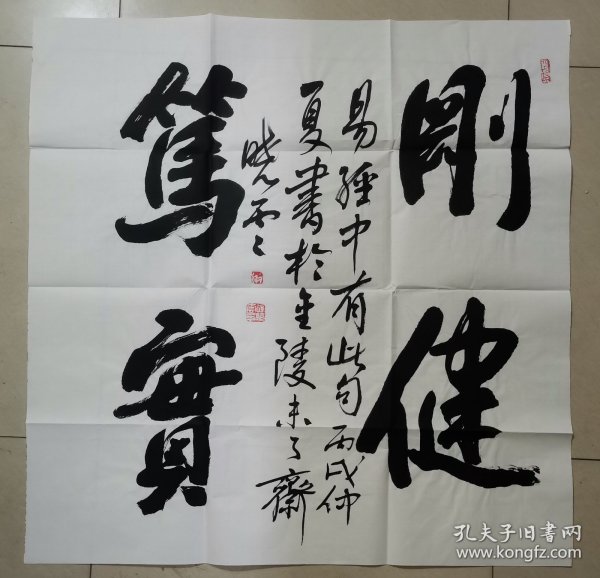 剛健
易經中有此句丙戌仲
夏書於金陵未了齋
曉雲
篤實
孔夫子旧书网
www.kongfz.com